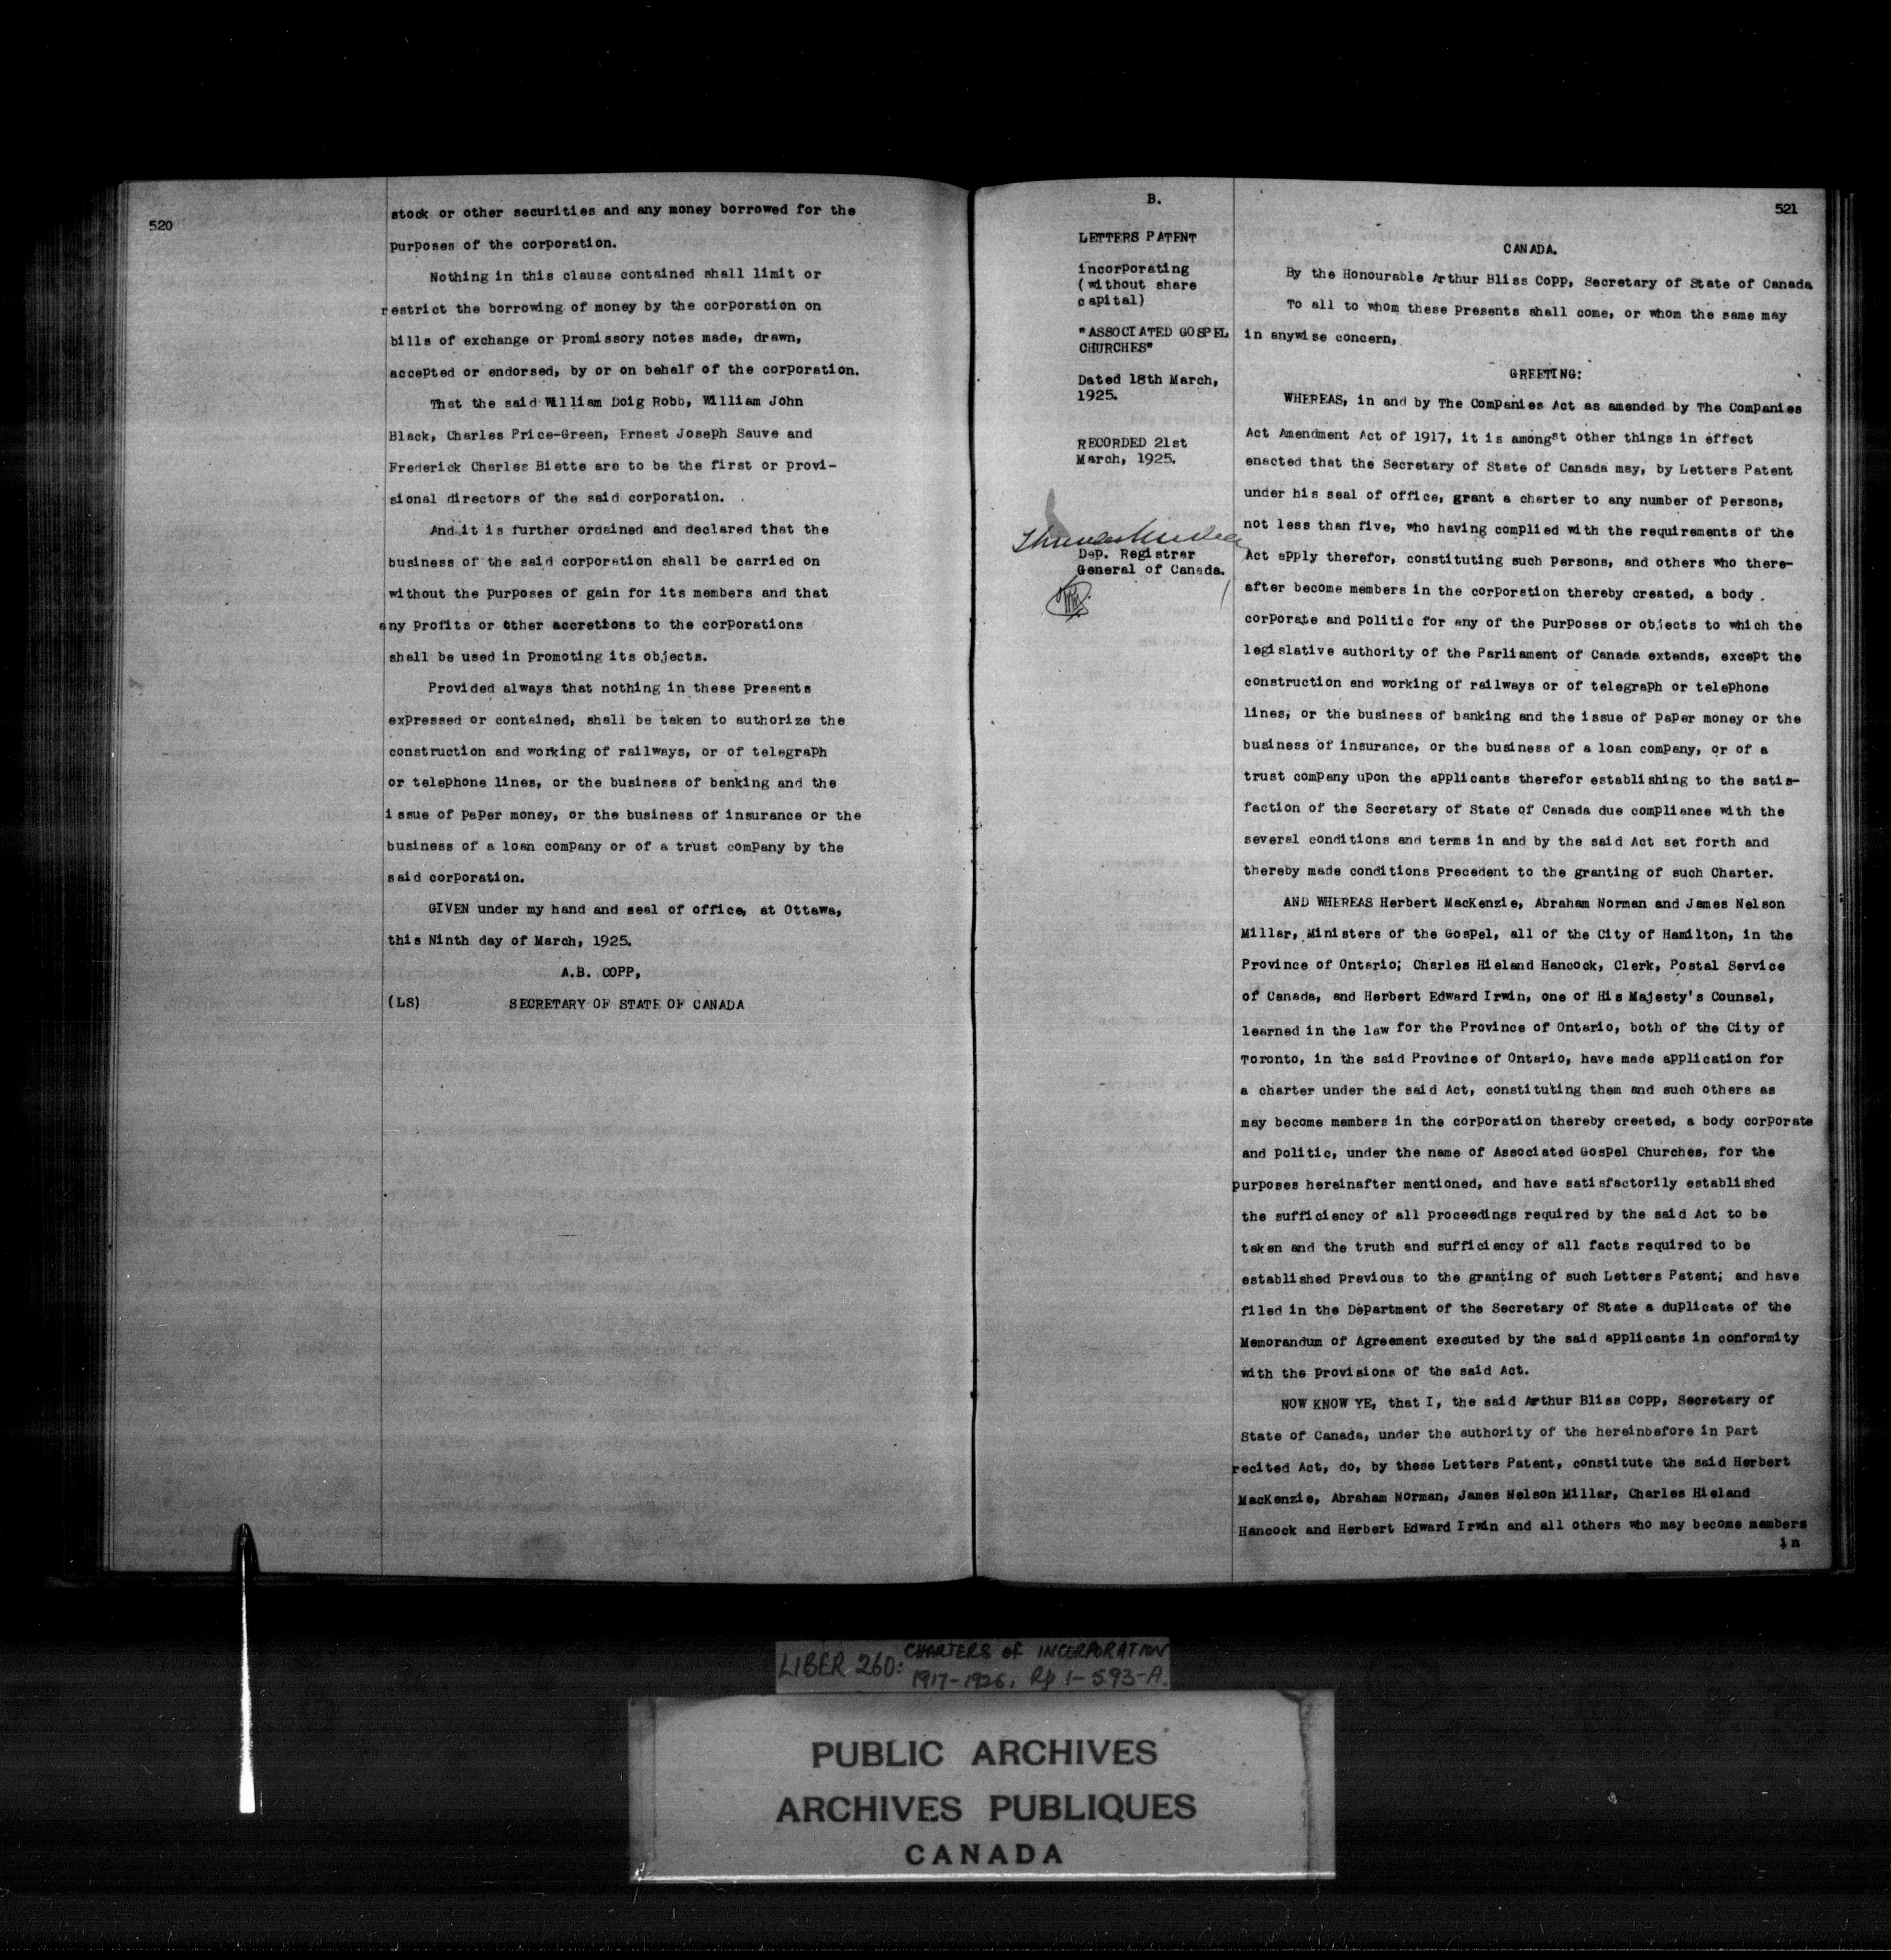 520
stock or other securities and any money borrowed for the
purposes of the corporation.
Nothing in this clause contained shall limit or
restrict the borrowing of money by the corporation on
bills of exchange or promissory notes made, drawn,
accepted or endorsed, by or on behalf of the corporation.
That the said William Doig Robb, William John
Black, Charles Price-Green, Ernest Joseph Sauve and
Frederick Charles Biette are to be the first or provi-
sional directors of the said corporation.
And it is further ordained and declared that the
business of the said corporation shall be carried on
without the purposes of gain for its members and that
any profits or other accretions to the corporations
shall be used in promoting its objects.
Provided always that nothing in these presents
expressed or contained, shall be taken to authorize the
construction and working of railways, or of telegraph
or telephone lines, or the business of banking and the
issue of paper money, or the business of insurance or the
business of a loan company or of a trust company by the
said corporation.
GIVEN under my hand and seal of office, at Ottawa,
this Ninth day of March, 1925.
A.B. COPP,
(LS) SECRETARY OF STATE OF CANADA
B.
LETTERS PATENT
incorporating
(without share
capital)
"ASSOCIATED GOSPEL
CHURCHES"
Dated 18th March,
1925.
RECORDED 21st
March, 1925.
Dep. Registrar
General of Canada.
521
CANADA.
By the Honourable Arthur Bliss Copp, Secretary of State of Canada
To all to whom these presents shall come, or whom the same may
in anywise concern,
GREETING:
WHEREAS, in and by The Companies Act as amended by The Companies
Act Amendment Act of 1917, it is amongst other things in effect
enacted that the Secretary of State of Canada may, by Letters Patent
under his seal of office, grant a charter to any number of persons,
not less than five, who having complied with the requirements of the
Act apply therefor, constituting such persons, and others who there-
after become members in the corporation thereby created, a body
corporate and politic for any of the purposes or objects to which the
legislative authority of the Parliament of Canada extends, except the
construction and working of railways or of telegraph or telephone
lines, or the business of banking and the issue of paper money or the
business of insurance, or the business of a loan company, or of a
trust company upon the applicants therefor establishing to the satis-
faction of the Secretary of State of Canada due compliance with the
several conditions and terms in and by the said Act set forth and
thereby made conditions precedent to the granting of such Charter.
AND WHEREAS Herbert MacKenzie, Abraham Norman and James Nelson
Millar, Ministers of the Gospel, all of the City of Hamilton, in the
Province of Ontario; Charles Hieland Hancock, Clerk, Postal Service
of Canada, and Herbert Edward Irwin, one of His Majesty's Counsel,
learned in the law for the Province of Ontario, both of the City of
Toronto, in the said Province of Ontario, have made application for
a charter under the said Act, constituting them and such others as
may become members in the corporation thereby created, a body corporate
and politic, under the name of Associated Gospel Churches, for the
purposes hereinafter mentioned, and have satisfactorily established
the sufficiency of all proceedings required by the said Act to be
taken and the truth and sufficiency of all facts required to be
established previous to the granting of such Letters Patent; and have
filed in the Department of the Secretary of State a duplicate of the
Memorandum of Agreement executed by the said applicants in conformity
with the provisions of the said Act.
NOW KNOW YE, that I, the said Arthur Bliss Copp, Secretary of
State of Canada, under the authority of the hereinbefore in part
recited Act, do, by these Letters Patent, constitute the said Herbert
MacKenzie, Abraham Norman, James Nelson Millar, Charles Hieland
Hancock and Herbert Edward Irwin and all others who may become members
in
LIBER 260: CHARTERS of INCORPORATION
1917-1926, Pp 1-593-A.
PUBLIC ARCHIVES
ARCHIVES PUBLIQUES
CANADA